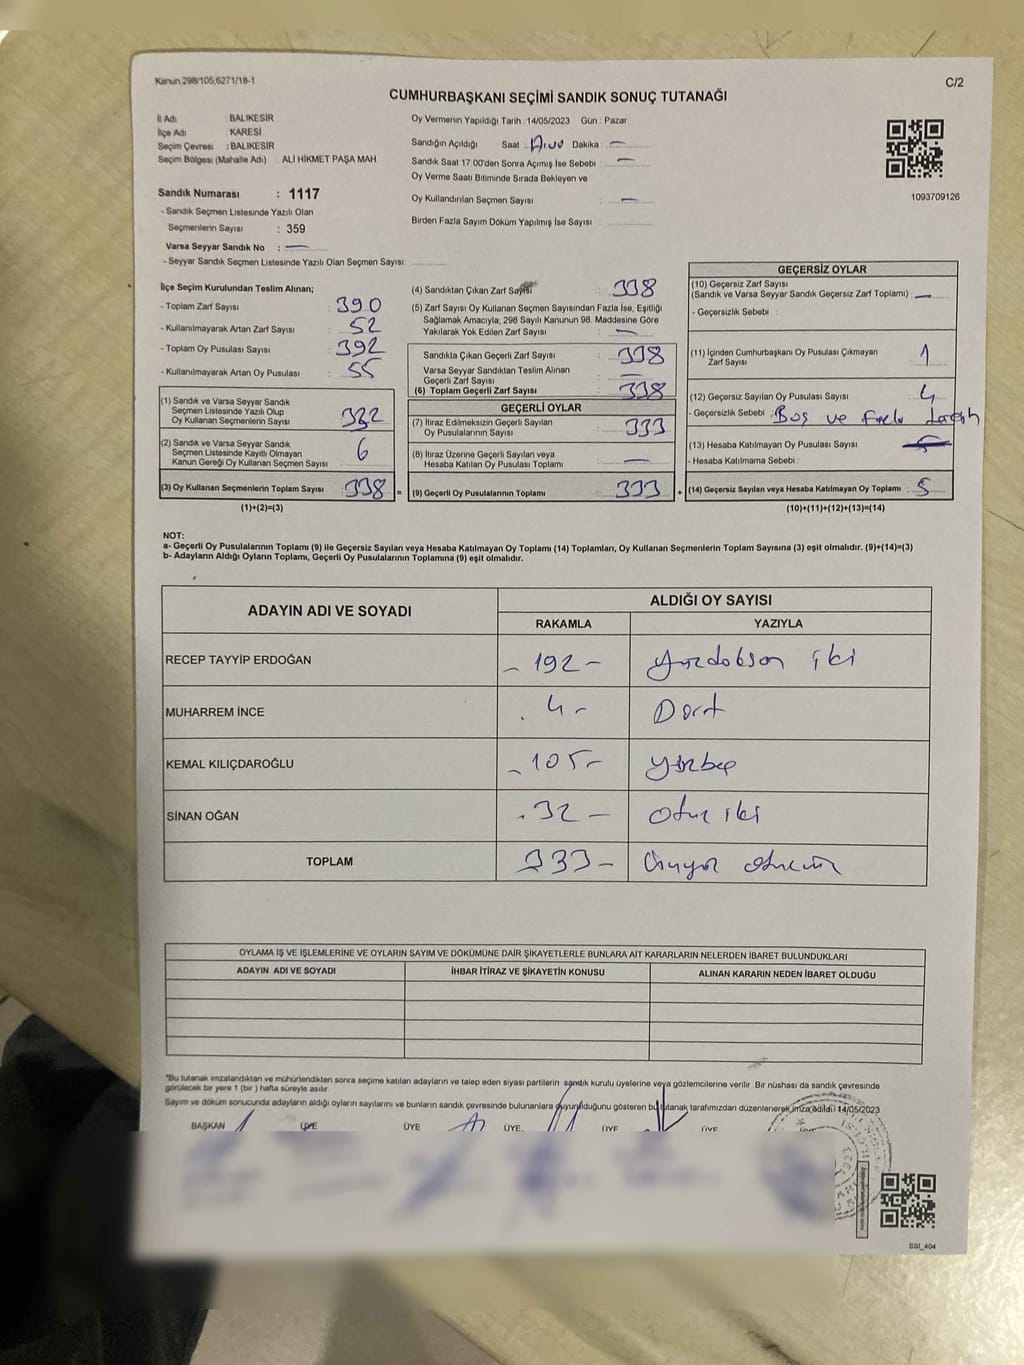 Kanun,298/105,6271/18-1
C/2
CUMHURBAŞKANI SEÇİMİ SANDIK SONUÇ TUTANAĞI
İl Adı : BALIKESİR
İlçe Adı : KARESİ
Seçim Çevresi : BALIKESİR
Seçim Bölgesi (Mahalle Adı) : ALİ HİKMET PAŞA MAH.
Oy Vermenin Yapıldığı Tarih :14/05/2023 Gün : Pazar
Sandığın Açıldığı Saat : Dakika : —
Sandık Saat 17:00'den Sonra Açımış İse Sebebi : —
Oy Verme Saati Bitiminde Sırada Bekleyen ve
Oy Kullandırılan Seçmen Sayısı : —
Birden Fazla Sayım Döküm Yapılmış İse Sayısı :
1093709126
Sandık Numarası : 1117
- Sandık Seçmen Listesinde Yazılı Olan
Seçmenlerin Sayısı : 359
Varsa Seyyar Sandık No : —
- Seyyar Sandık Seçmen Listesinde Yazılı Olan Seçmen Sayısı:
İlçe Seçim Kurulundan Teslim Alınan;
- Toplam Zarf Sayısı : 390
- Kullanılmayarak Artan Zarf Sayısı : 52
- Toplam Oy Pusulası Sayısı : 392
- Kullanılmayarak Artan Oy Pusulası : 55
(1) Sandık ve Varsa Seyyar Sandık
Seçmen Listesinde Yazılı Olup
Oy Kullanan Seçmenlerin Sayısı : 332
(2) Sandık ve Varsa Seyyar Sandık
Seçmen Listesinde Kayıtlı Olmayan
Kanun Gereği Oy Kullanan Seçmen Sayısı : 6
(3) Oy Kullanan Seçmenlerin Toplam Sayısı : 338 =
(1)+(2)=(3)
(4) Sandıktan Çıkan Zarf Sayısı : 338
(5) Zarf Sayısı Oy Kullanan Seçmen Sayısından Fazla İse, Eşitliği
Sağlamak Amacıyla; 298 Sayılı Kanunun 98. Maddesine Göre
Yakılarak Yok Edilen Zarf Sayısı : —
Sandıkta Çıkan Geçerli Zarf Sayısı : 338
Varsa Seyyar Sandıktan Teslim Alınan
Geçerli Zarf Sayısı : —
(6) Toplam Geçerli Zarf Sayısı : 338
GEÇERLİ OYLAR
(7) İtiraz Edilmeksizin Geçerli Sayılan
Oy Pusulalarının Sayısı : 333
(8) İtiraz Üzerine Geçerli Sayılan veya
Hesaba Katılan Oy Pusulası Toplamı : —
(9) Geçerli Oy Pusulalarının Toplamı : 333 +
GEÇERSİZ OYLAR
(10) Geçersiz Zarf Sayısı
(Sandık ve Varsa Seyyar Sandık Geçersiz Zarf Toplamı) : —
- Geçersizlik Sebebi :
(11) İçinden Cumhurbaşkanı Oy Pusulası Çıkmayan
Zarf Sayısı : 1
(12) Geçersiz Sayılan Oy Pusulası Sayısı : 4
- Geçersizlik Sebebi : Boş ve
(13) Hesaba Katılmayan Oy Pusulası Sayısı :
- Hesaba Katılmama Sebebi :
(14) Geçersiz Sayılan veya Hesaba Katılmayan Oy Toplamı : 5
(10)+(11)+(12)+(13)=(14)
NOT:
a- Geçerli Oy Pusulalarının Toplamı (9) ile Geçersiz Sayılan veya Hesaba Katılmayan Oy Toplamı (14) Toplamları, Oy Kullanan Seçmenlerin Toplam Sayısına (3) eşit olmalıdır. (9)+(14)=(3)
b- Adayların Aldığı Oyların Toplamı, Geçerli Oy Pusulalarının Toplamına (9) eşit olmalıdır.
ADAYIN ADI VE SOYADI
ALDIĞI OY SAYISI
RAKAMLA YAZIYLA
RECEP TAYYİP ERDOĞAN – 192 – yüzdoksan iki
MUHARREM İNCE . 4 – Dört
KEMAL KILIÇDAROĞLU – 105 – yüzbeş
SİNAN OĞAN . 32 – otuz iki
TOPLAM 333 – üçyüz otuzüç
OYLAMA İŞ VE İŞLEMLERİNE VE OYLARIN SAYIM VE DÖKÜMÜNE DAİR ŞİKAYETLERLE BUNLARA AİT KARARLARIN NELERDEN İBARET BULUNDUKLARI
ADAYIN ADI VE SOYADI İHBAR İTİRAZ VE ŞİKAYETİN KONUSU ALINAN KARARIN NEDEN İBARET OLDUĞU
*Bu tutanak imzalandıktan ve mühürlendikten sonra seçime katılan adayların ve talep eden siyasi partilerin sandık kurulu üyelerine veya gözlemcilerine verilir .Bir nüshası da sandık çevresinde
görülecek bir yere 1 (bir ) hafta süreyle asılır.
Sayım ve döküm sonucunda adayların aldığı oyların sayılarını ve bunların sandık çevresinde bulunanlara duyurulduğunu gösteren bu tutanak tarafımızdan düzenlenerek imza edildi 14/05/2023
BAŞKAN ÜYE ÜYE ÜYE. ÜYE ÜYE
SSI_404